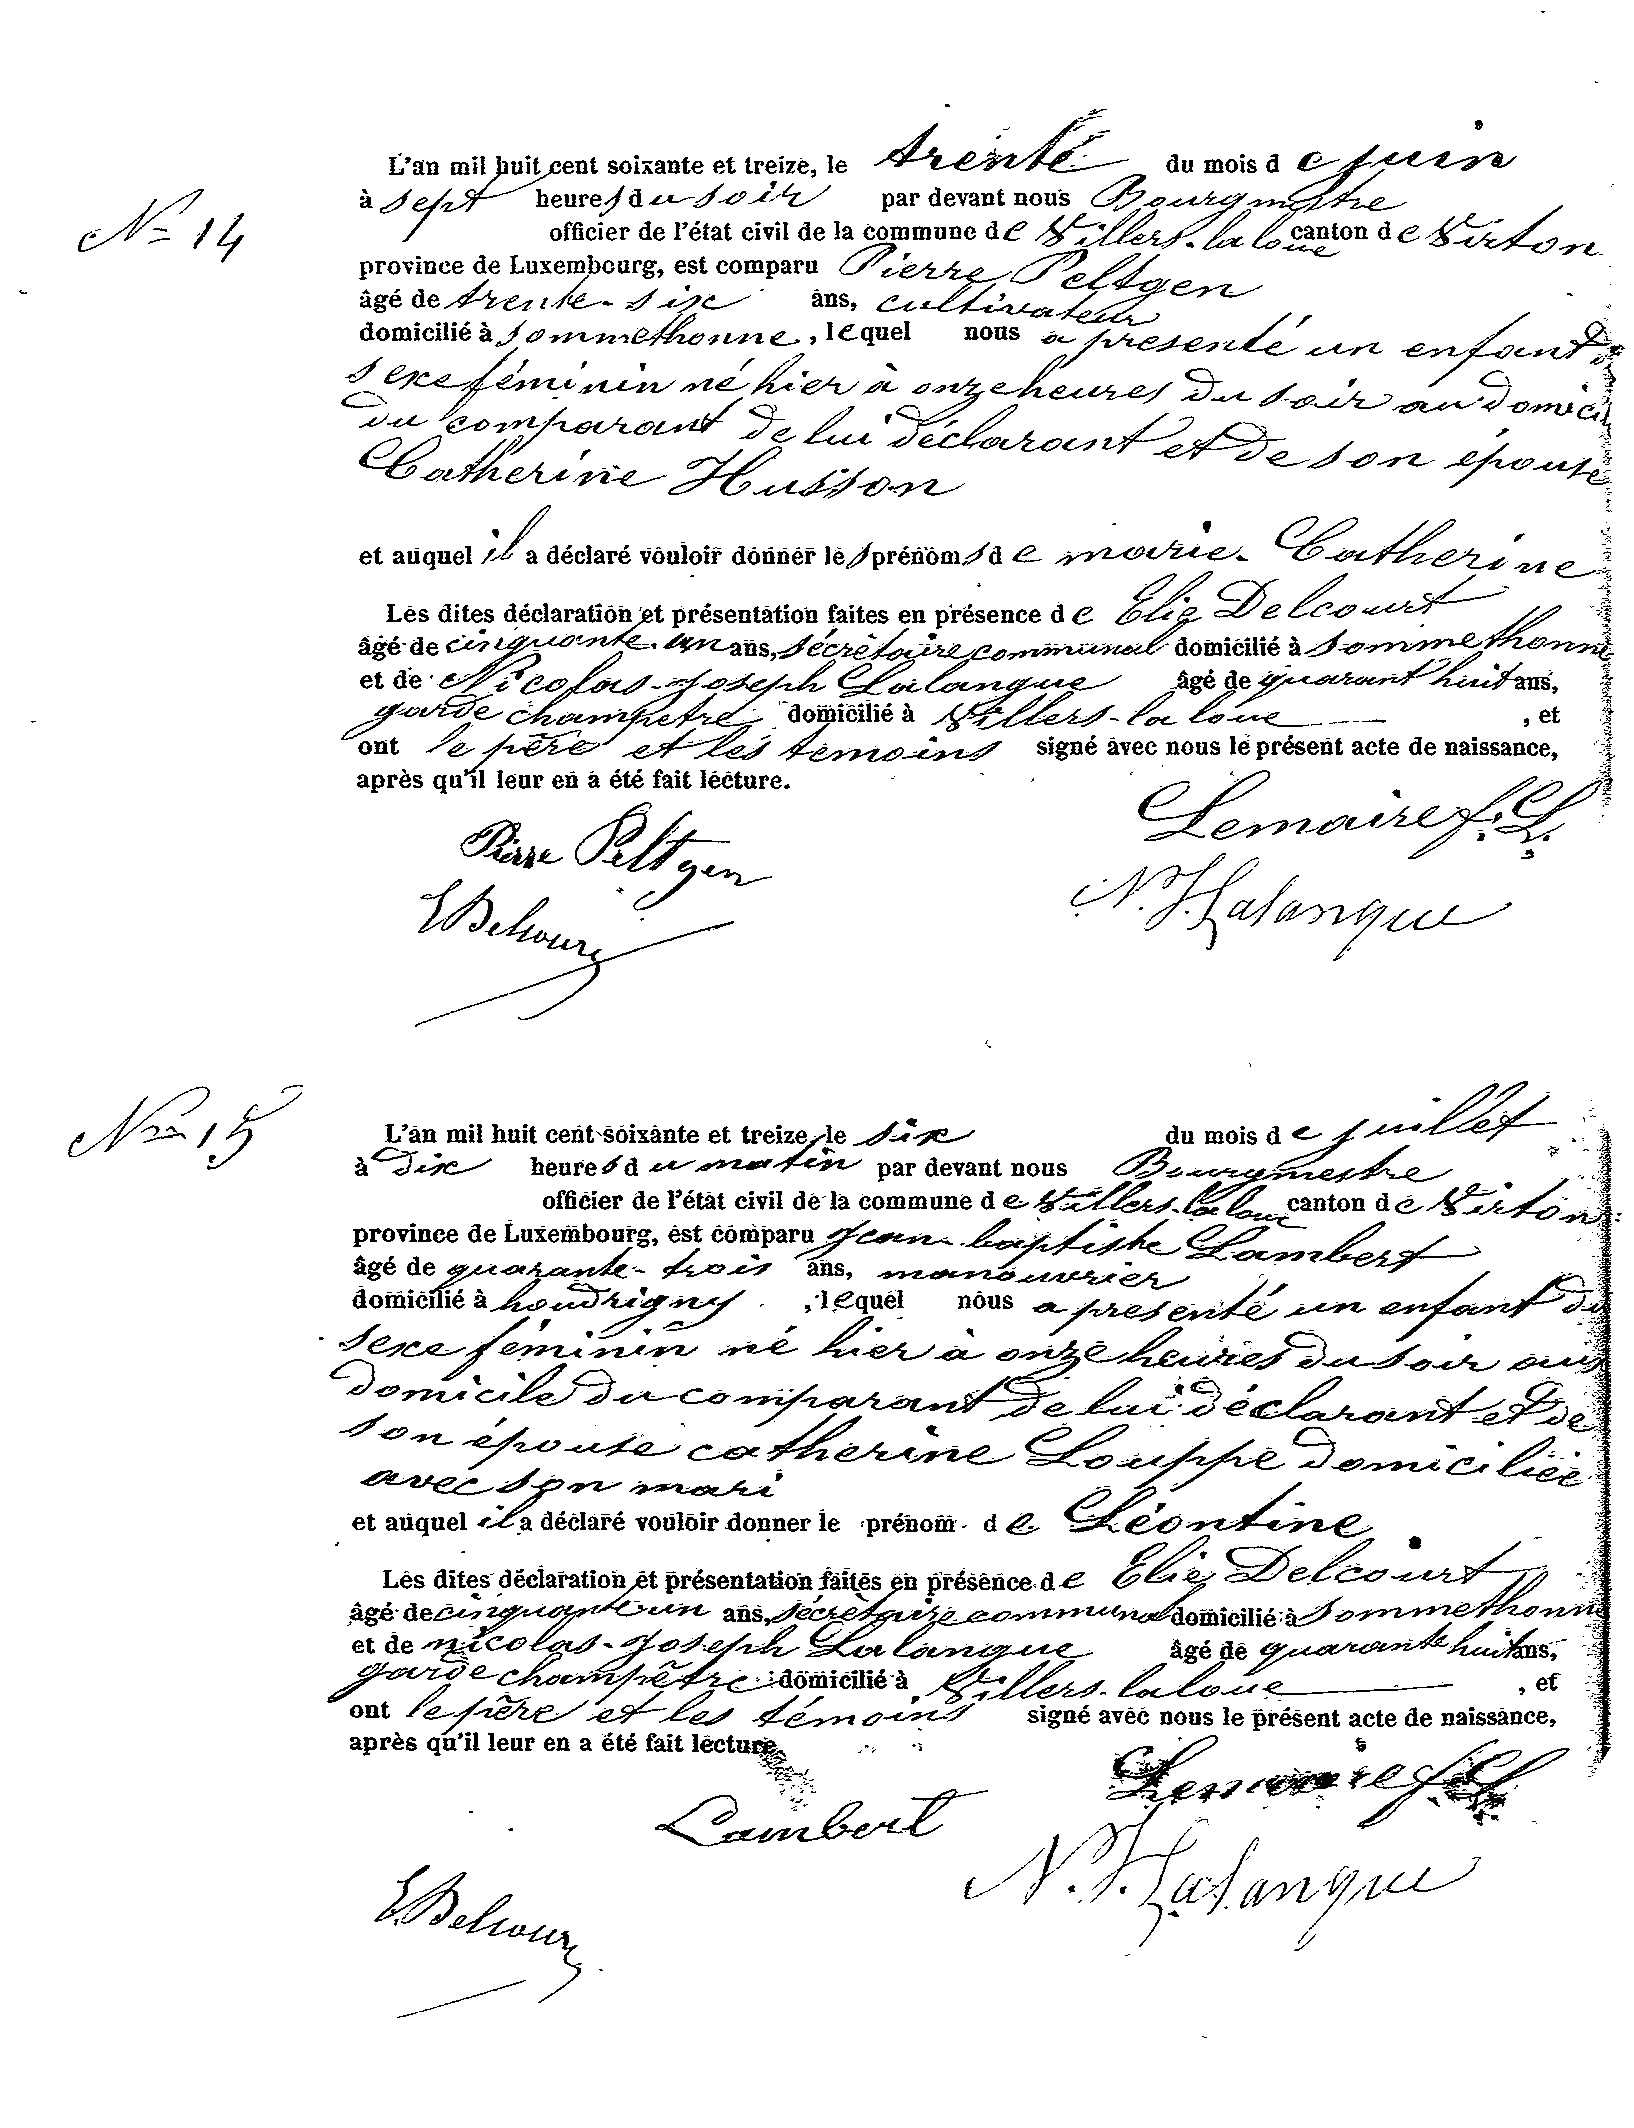 L'an mil huit cent soixante et treize, le trente du mois de juin
N= 14
à sept heures du soir par devant nous Bourgmestre
officier de l'état civil de la commune de Villers-la loue canton de Virton
province de Luxembourg, est comparu Pierre Peltgen
âgé de trente-six ans, cultivateur
domicilié à Sommethonne, lequel nous a presenté un enfant du
sexe féminin né hier à onze heures du soir au domicil
du comparant de lui déclarant et de son épouse
Catherine Husson
et auquel il a déclaré vouloir donner les prénoms de marie-Catherine
Les dites déclaration et présentation faites en présence de Elie Delcourt
âgé de cinquante-un ans, sécrétaire communal domicilié à Sommethonne
et de Nicolas-Joseph Lalangue âgé de quarant huit ans,
garde champetre domicilié à Villers-la loue , et
ont le père et les témoins signé avec nous le présent acte de naissance,
après qu'il leur en a été fait lecture.
Lemaire f. L.
Pierre Peltgen
N. J. Lalangue
E Delcourt
N= 15
L'an mil huit cent soixante et treize, le six du mois de juillet
à dix heures du matin par devant nous Bourgmestre
officier de l'état civil de la commune de Villers-la loue canton de Virton
province de Luxembourg, est comparu Jean-baptiste Lambert
âgé de quarante-trois ans, manouvrier
domicilié à houdrigny, lequel nous a presenté un enfant du
sexe féminin né hier à onze heures du soir au
domicile du comparant de lui déclarant et de
son épouse catherine Louppe domiciliée
avec son mari
et auquel il a déclaré vouloir donner le prénom de Léontine
Les dites déclaration et présentation faites en présence de Elie Delcourt
âgé de cinquante un ans, sécrétaire communal domicilié à Sommethonne
et de nicolas-Joseph Lalangue âgé de quarante huit ans,
garde champêtre domicilié à Villers-la loue , et
ont le père et les témoins signé avec nous le présent acte de naissance,
après qu'il leur en a été fait lecture
Lemaire f. L.
Lambert
N. J. Lalangue
E Delcourt